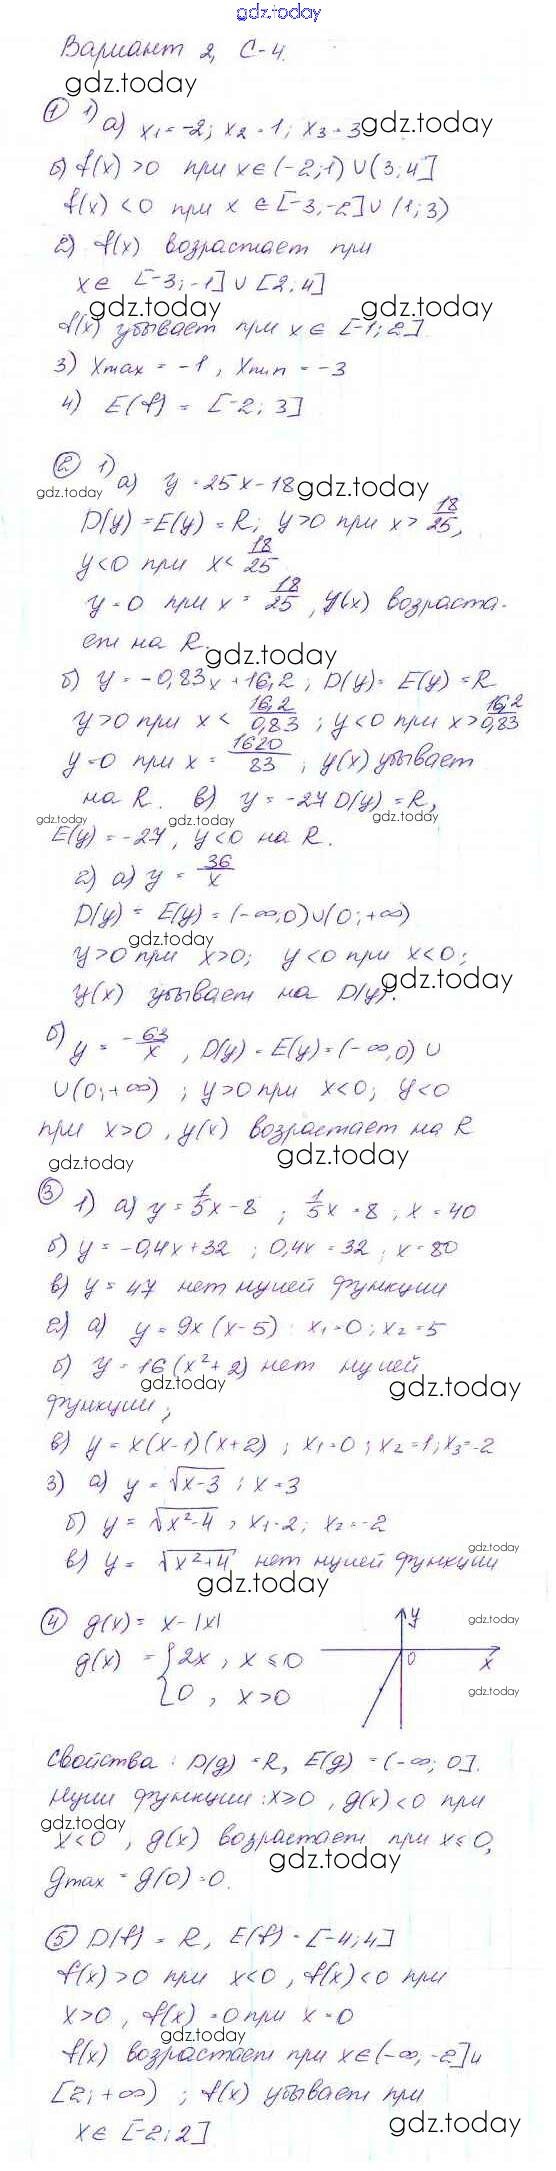 gdz.today
Вариант 2, С-4.
gdz.today
① 1) а) x₁ = -2; x₂ = 1; x₃ = 3 gdz.today
б) f(x) > 0 при x ∈ (-2;1) ∪ (3;4]
f(x) < 0 при x ∈ [-3,-2] ∪ (1;3)
2) f(x) возрастает при
x ∈ [-3;-1] ∪ [2;4]
gdz.today gdz.today
f(x) убывает при x ∈ [-1;2]
3) Xmax = -1, Xmin = -3
4) E(f) = [-2; 3]
② 1) а) y = 25x - 18 gdz.today
gdz.today
D(y) = E(y) = R; y > 0 при x > 18/25,
y < 0 при x < 18/25
y = 0 при x = 18/25, y(x) возраста-
ет на R.
gdz.today
б) y = -0,83x + 16,2; D(y) = E(y) = R
y > 0 при x < 16,2/0,83; y < 0 при x > 16,2/0,83
y = 0 при x = 1620/83; y(x) убывает
на R. в) y = -27 D(y) = R,
gdz.today gdz.today gdz.today
E(y) = -27, y < 0 на R.
2) а) y = 36/x
D(y) = E(y) = (-∞,0) ∪ (0;+∞)
gdz.today
y > 0 при x > 0; y < 0 при x < 0;
gdz.today
y(x) убывает на D(y).
б) y = -63/x, D(y) = E(y) = (-∞,0) ∪
∪ (0;+∞); y > 0 при x < 0; y < 0
при x > 0, y(x) возрастает на R
gdz.today gdz.today
③ 1) а) y = 1/5x - 8; 1/5x = 8, x = 40
б) y = -0,4x + 32; 0,4x = 32; x = 80
в) y = 47 нет нулей функции
2) а) y = 9x(x-5) x₁ = 0; x₂ = 5
б) y = 16(x² + 2) нет нулей
gdz.today gdz.today
функции;
в) y = x(x-1)(x+2); x₁ = 0; x₂ = 1; x₃ = -2
3) а) y = √(x-3); x = 3
б) y = √(x²-4), x₁ = 2; x₂ = -2
gdz.today
в) y = √(x²+4) нет нулей функции
gdz.today
④ g(x) = x - |x| y
gdz.today
g(x) = {2x, x ≤ 0 0 x
0, x > 0
gdz.today
Свойства: D(g) = R, E(g) = (-∞; 0].
Нули функции: x ≥ 0, g(x) < 0 при
gdz.today
x < 0, g(x) возрастает при x ≤ 0,
gdz.today
gmax = g(0) = 0.
⑤ D(f) = R, E(f) = [-4;4]
f(x) > 0 при x < 0, f(x) < 0 при
x > 0, f(x) = 0 при x = 0
gdz.today
f(x) возрастает при x ∈ (-∞,-2] и
[2;+∞); f(x) убывает при
x ∈ [-2;2]
gdz.today